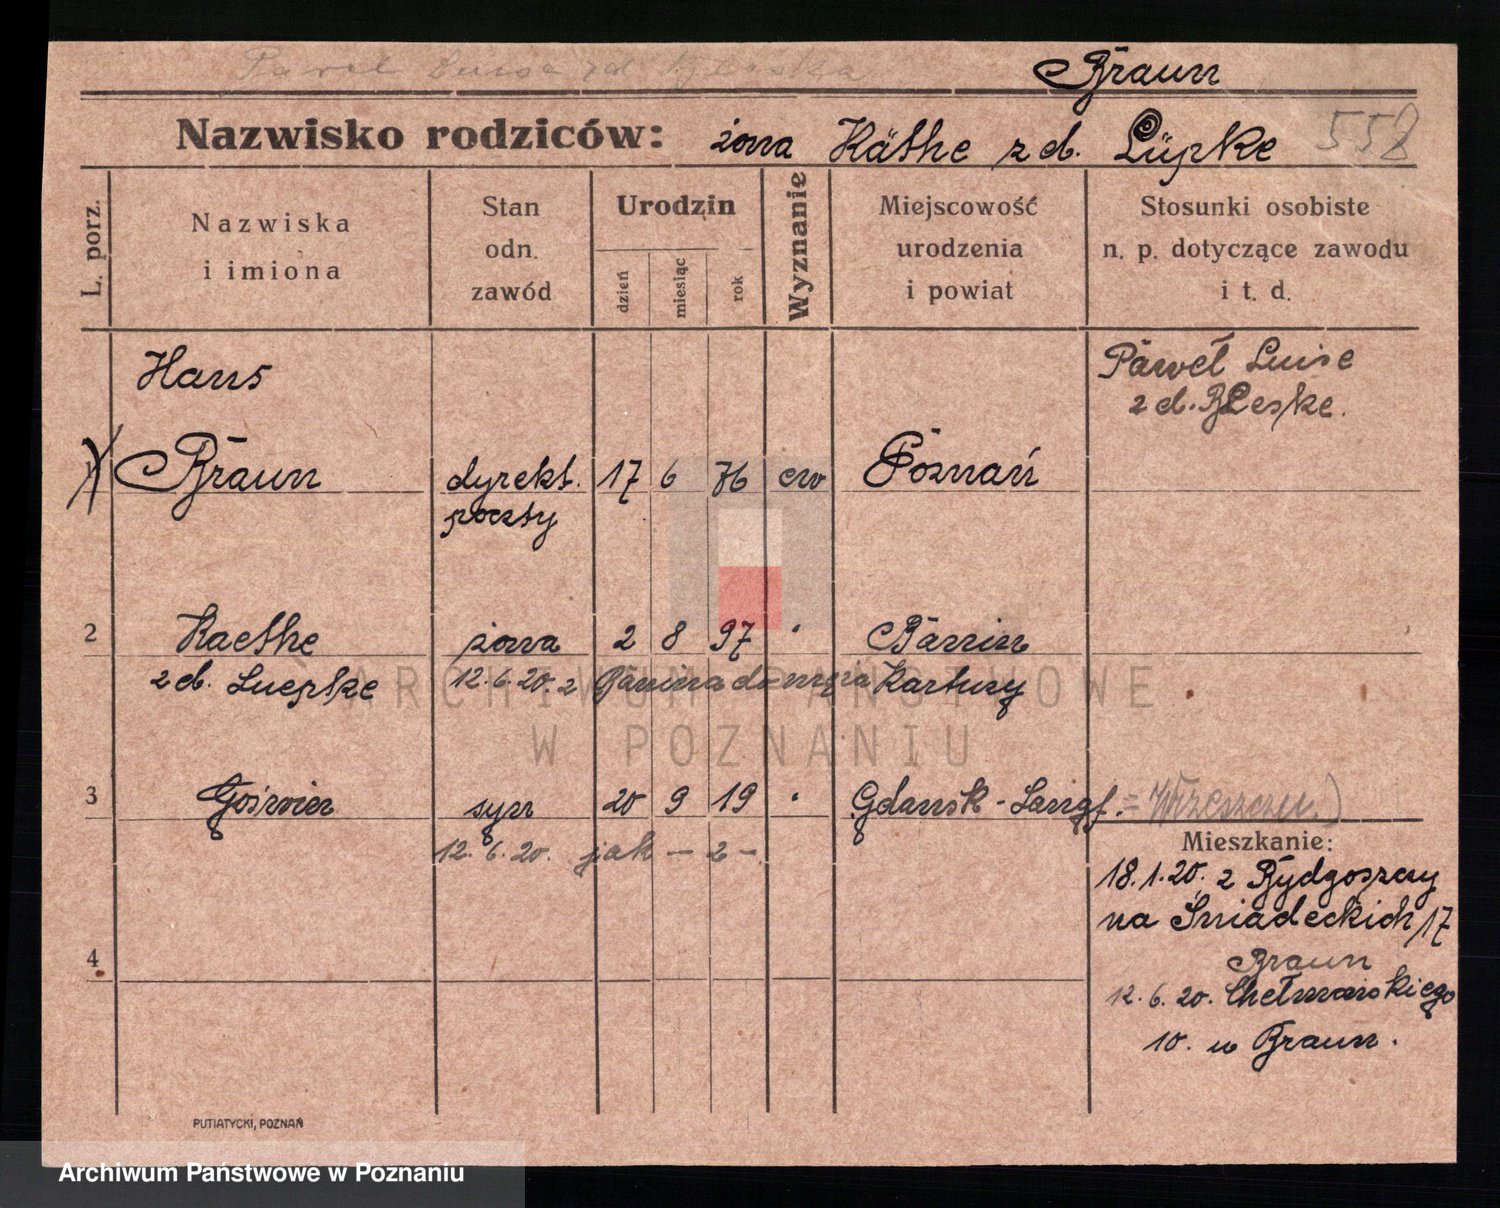 Paweł Luise zd. Bleske
Braun
Nazwisko rodziców: żona Käthe z d. Lüpke 558
L. porz.
Nazwiska
i imiona
Stan
odn.
zawód
Urodzin
dzień
miesiąc
rok
Wyznanie
Miejscowość
urodzenia
i powiat
Stosunki osobiste
n. p. dotyczące zawodu
i t. d.
Hans
Paweł Luise
z d. Bleske.
1 Braun dyrekt. 17 6 76 ew Poznań
poczty
2 Kaethe żona 2 8 97 "
z d. Luepke 12.6.20. z Kartuzy
3 syn 20 9 19 " Gdansk - Langf. = Wrzeszczu)
12. 6. 20. jak - 2 -
Mieszkanie:
18.1.20. z Bydgoszczy
na Śniadeckich 17
Braun
4
12. 6. 20. Chełmońskiego
10. u Braun.
PUTIATYCKI, POZNAŃ
ARCHIWUM PAŃSTWOWE
W POZNANIU
Archiwum Państwowe w Poznaniu